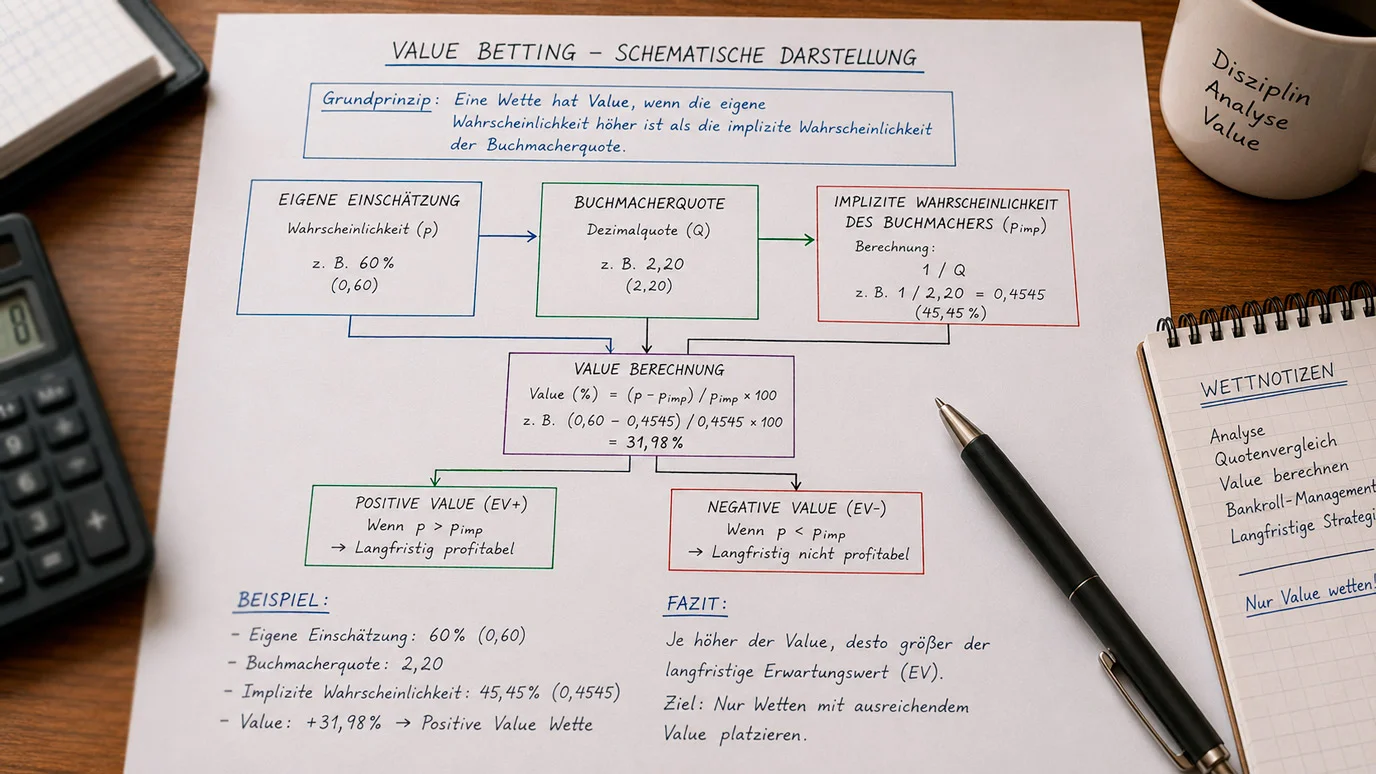 VALUE BETTING – SCHEMATISCHE DARSTELLUNG
Grundprinzip: Eine Wette hat Value, wenn die eigene
Wahrscheinlichkeit höher ist als die implizite Wahrscheinlichkeit
der Buchmacherquote.
EIGENE EINSCHÄTZUNG
Wahrscheinlichkeit (p)
z. B. 60%
(0,60)
BUCHMACHERQUOTE
Dezimalquote (Q)
z. B. 2,20
(2,20)
IMPLIZITE WAHRSCHEINLICHKEIT
DES BUCHMACHERS (pimp)
Berechnung:
1 / Q
z. B. 1 / 2,20 = 0,4545
(45,45%)
VALUE BERECHNUNG
Value (%) = (p - pimp) / pimp × 100
z. B. (0,60 - 0,4545) / 0,4545 × 100
= 31,98%
POSITIVE VALUE (EV+)
Wenn p > pimp
→ Langfristig profitabel
NEGATIVE VALUE (EV-)
Wenn p < pimp
→ Langfristig nicht profitabel
BEISPIEL:
- Eigene Einschätzung: 60% (0,60)
- Buchmacherquote: 2,20
- Implizite Wahrscheinlichkeit: 45,45% (0,4545)
- Value: +31,98% → Positive Value Wette
FAZIT:
Je höher der Value, desto größer der
langfristige Erwartungswert (EV).
Ziel: Nur Wetten mit ausreichendem
Value platzieren.
Disziplin
Analyse
Value
WETTNOTIZEN
Analyse
Quotenvergleich
Value berechnen
Bankroll-Management
Langfristige Strategi
Nur Value wetten!
8
M+
9
6
3
+
=